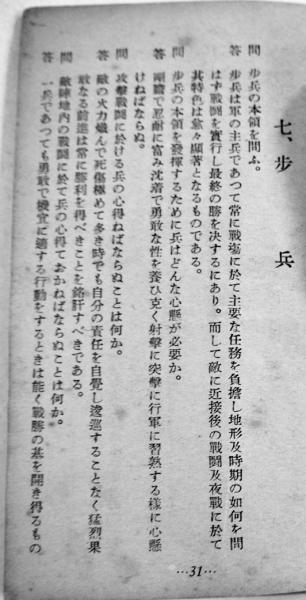 七、步兵
問 步兵の本領を問ふ。
答 步兵は軍の主兵であつて常に戰場に於て主要な任務を負擔し地形及時期の如何を問
はず戰鬪を實行し最終の勝を決するにあり。而して敵に近接後の戰鬪及夜戰に於て
其特色は堂々顯著となるものである。
問 步兵の本領を發揮するために兵はどんな心懸が必要か。
答 剛膽で忍耐に富み沈着で勇敢な性を養ひ克く射擊に突擊に行軍に習熟する樣に心懸
けねばならぬ。
問 攻擊戰鬪に於ける兵の心得ねばならぬことは何か。
答 敵の火力熾んで死傷極めて多き時でも自分の責任を自覺し逡巡することなく猛烈果
敢なる前進は常に勝利を得べきことを銘肝すべきである。
問 敵陣地內の戰鬪に於て兵の心得ておかねばならぬことは何か。
答 一兵であつても勇敢で機宜に適する行動をするときは能く戰勝の基を開き得るもの
…31…